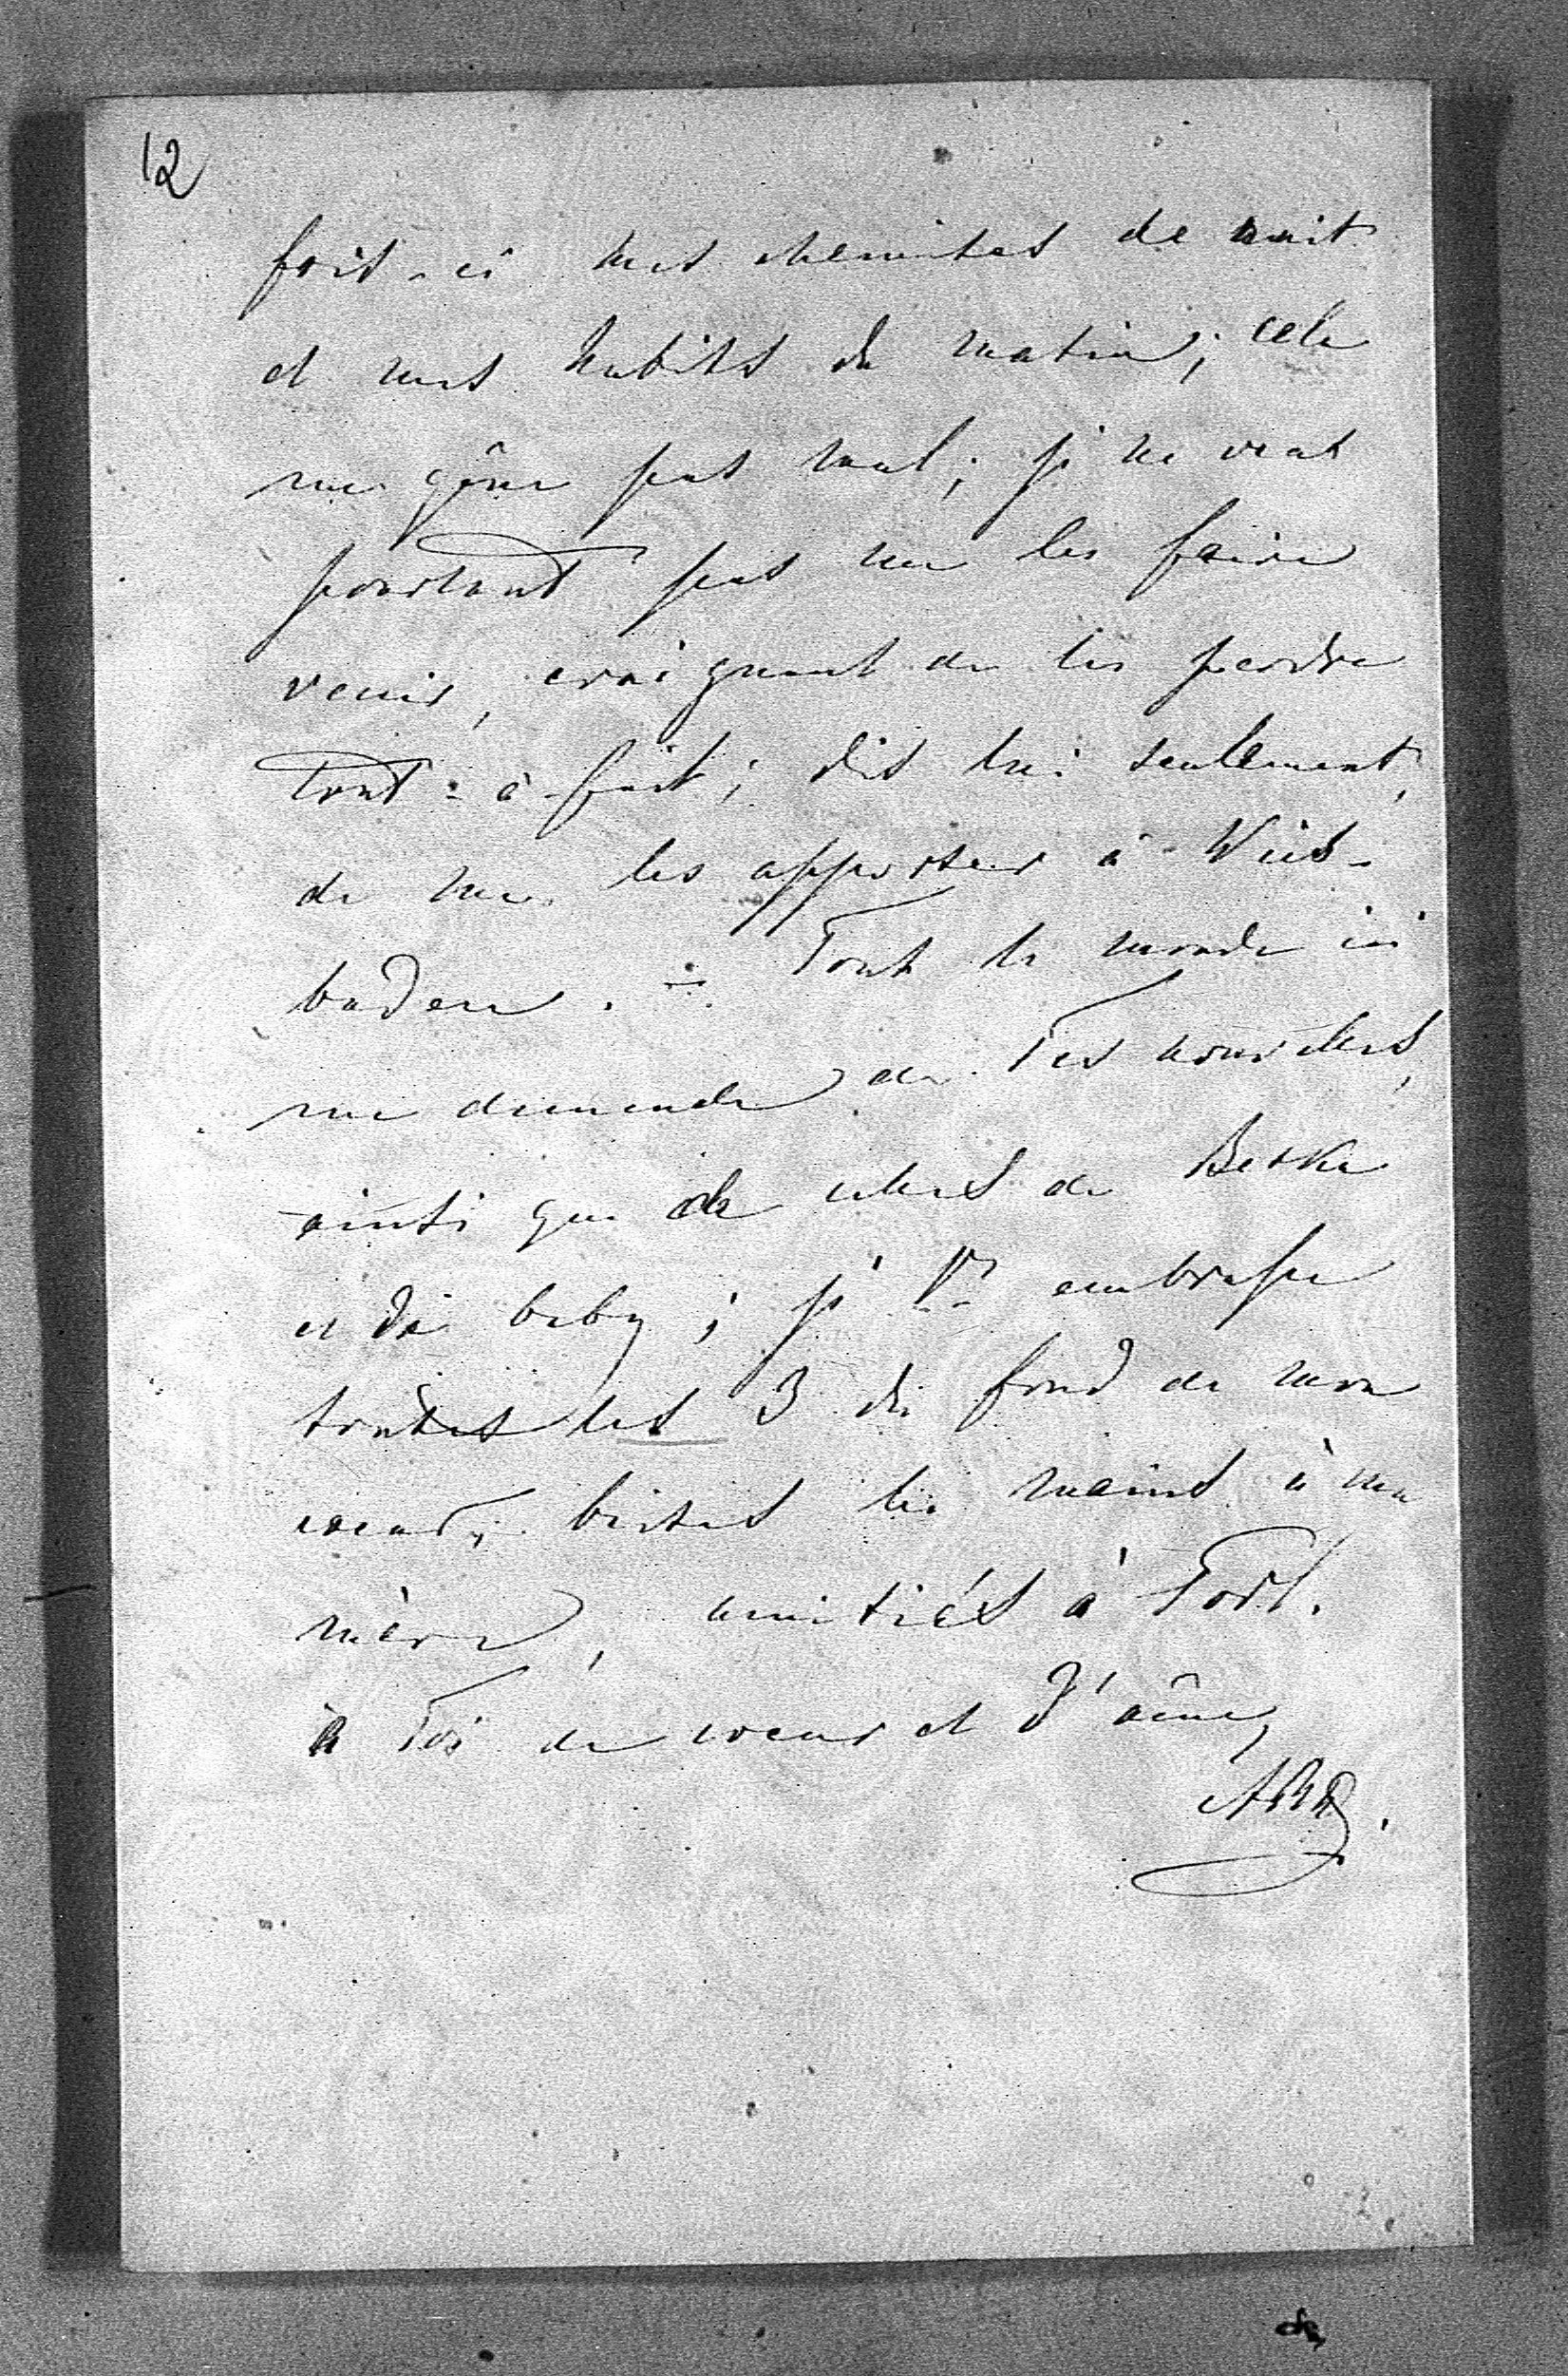 12
fois-ci mes chemises de nuit
et mes habits du matin; cela
me gêne pas mal; je ne veux
pourtant pas me les faire
venir, craignant de les perdre
tout-à-fait; dis lui seulement,
de me les apporter à Wies-
baden. — Tout le monde ici
me demande de Tes nouvelles,
ainsi que de celles de Betka
et du baby; je Vs embrasse
toutes les 3 du fond de mon
coeur; baises les mains à ma
mère, amitiés à
à Toi de coeur et d'âme,